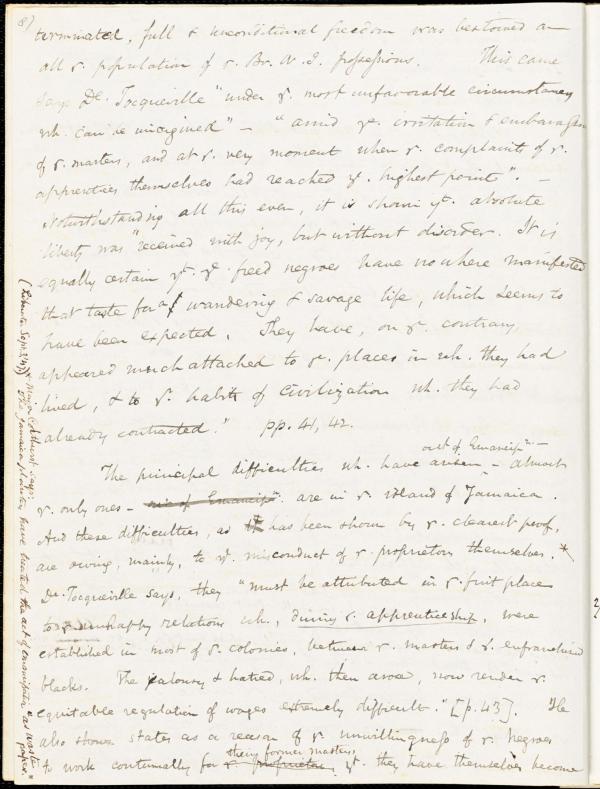 8)
terminated, full & unconditional freedom was bestowed on
all ye. population of ye. Br. W. I. possessions. This came
says De Tocqueville "under ye. most unfavorable circumstances
wh. can be imagined" – "amid ye. irritation & embarassmt
of ye. masters, and at ye. very moment when ye. complaints of ye.
apprentices themselves had reached ye. highest point". –
Notwithstanding all this even, it is shown yt. absolute
liberty was "received with joy, but without disorder. It is
equally certain yt. ye. freed negroes have no where manifested
that taste for a wandering & savage life, which seems to
have been expected. They have, on ye. contrary,
appeared much attached to ye. places in wh. they had
lived, & to ye. habits of civilization wh. they had
already contracted." pp. 41, 42.
out of Emancipn. –
The principal difficulties wh. have arisen – almost
ye. only ones – are in ye. island of Jamaica.
And these difficulties, as has been shown by ye. clearest proof,
are owing, mainly, to ye. misconduct of ye. proprietors themselves. *
De Tocqueville says, they "must be attributed in ye. first place
to ye. unhappy relations wh., during ye. apprenticeship, were
established in most of ye. colonies, between ye. masters & ye. enfranchised
blacks. The jealousy & hatred, wh. then arose, now render ye.
equitable regulation of wages extremely difficult." [p. 43]. He
also states as a reason of ye. unwillingness of ye. Negroes
their former masters
to work continually for yt. they have themselves become
Major Colthurst says:
"The Jamaica planters have treated the act of emancipation as waste paper."